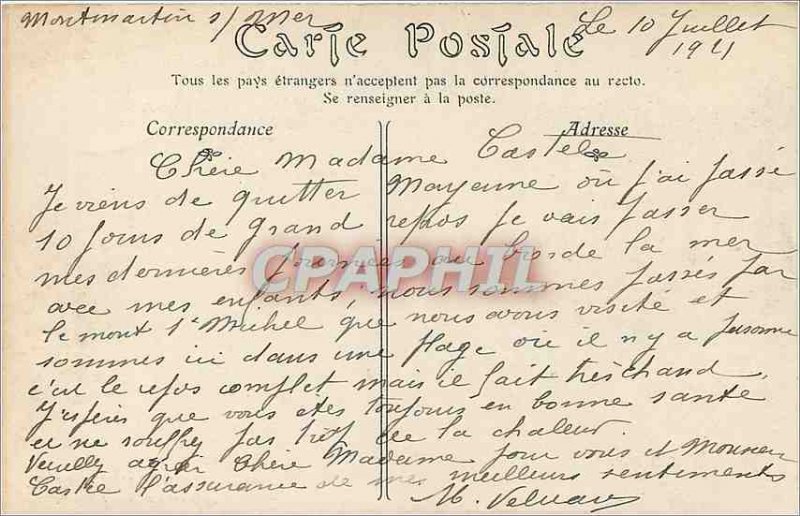 Montmartin s/ mer
Le 10 Juillet
1911
Carte Postale
Tous les pays étrangers n'acceptent pas la correspondance au recto.
Se renseigner à la poste.
Correspondance
Adresse
Chère Madame Castel
Je viens de quitter Mayenne où j'ai passé
10 jours de grand repos je vais passer
mes dernières journées au bord de la mer
CPAPHIL
avec mes enfants, nous sommes passés par
le mont St Michel que nous avons visité et
sommes ici dans une plage où il n'y a personne
c'est le repos complet mais il fait très chaud.
J'espère que vous êtes toujours en bonne santé
et ne souffrez pas trop de la chaleur.
Veuillez agréer Chère Madame pour vous et Monsieur
Castel l'assurance de mes meilleurs sentiments
M.